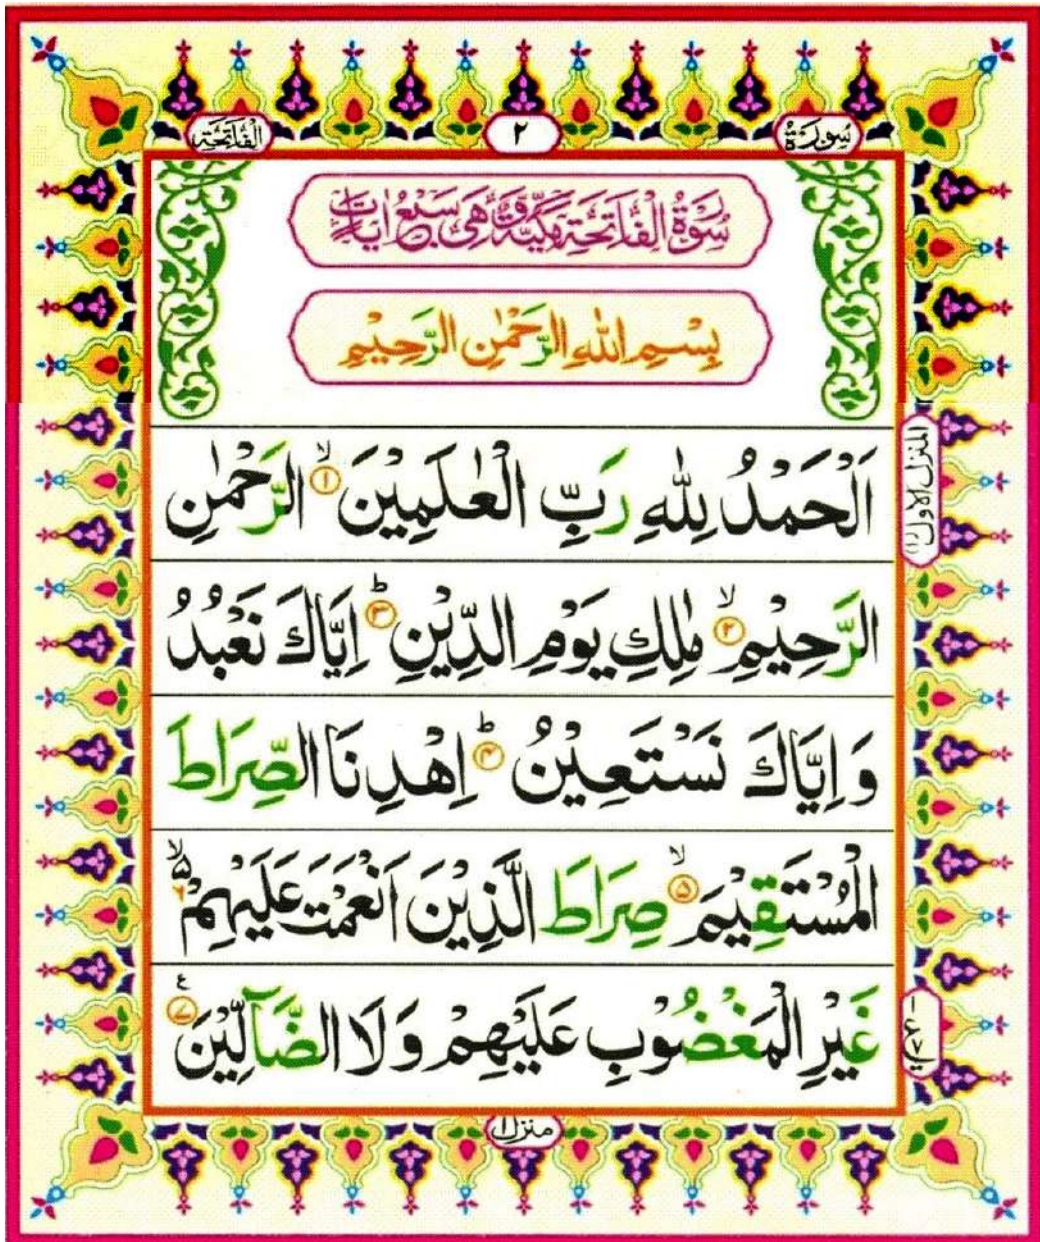 سُوْرَةُ
٢
اَلْفَاتِحَة
سُوْرَةُ الْفَاتِحَةِ مَكِّيَّةٌ وَّهِيَ سَبْعُ اٰيَاتٍ
بِسْمِ اللّٰهِ الرَّحْمٰنِ الرَّحِيْمِ
اَلْحَمْدُ لِلّٰهِ رَبِّ الْعٰلَمِيْنَ ۙ ١ الرَّحْمٰنِ
الرَّحِيْمِ ۙ ٢ مٰلِكِ يَوْمِ الدِّيْنِ ؕ ٣ اِيَّاكَ نَعْبُدُ
وَ اِيَّاكَ نَسْتَعِيْنُ ؕ ٤ اِهْدِنَا الصِّرَاطَ
الْمُسْتَقِيْمَ ۙ ٥ صِرَاطَ الَّذِيْنَ اَنْعَمْتَ عَلَيْهِمْ ۙ ٥ ٦
غَيْرِ الْمَغْضُوْبِ عَلَيْهِمْ وَلَا الضَّآلِّيْنَ ٧ ع
المنزل الاول (١)
١ ع ٧
منزل ١